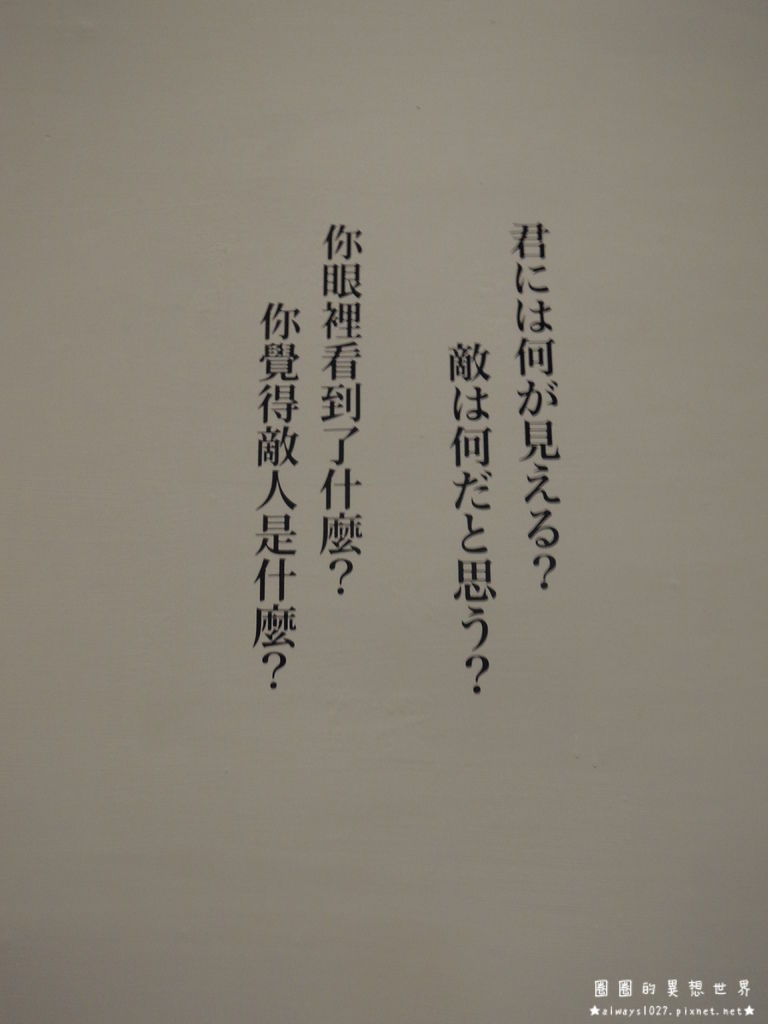 君には何が見える？
敵は何だと思う？
你眼裡看到了什麼？
你覺得敵人是什麼？
圈圈的異想世界
★always1027.pixnet.net★